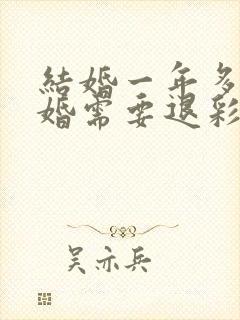 結婚一年多
婚需要退彩
吴亦兵